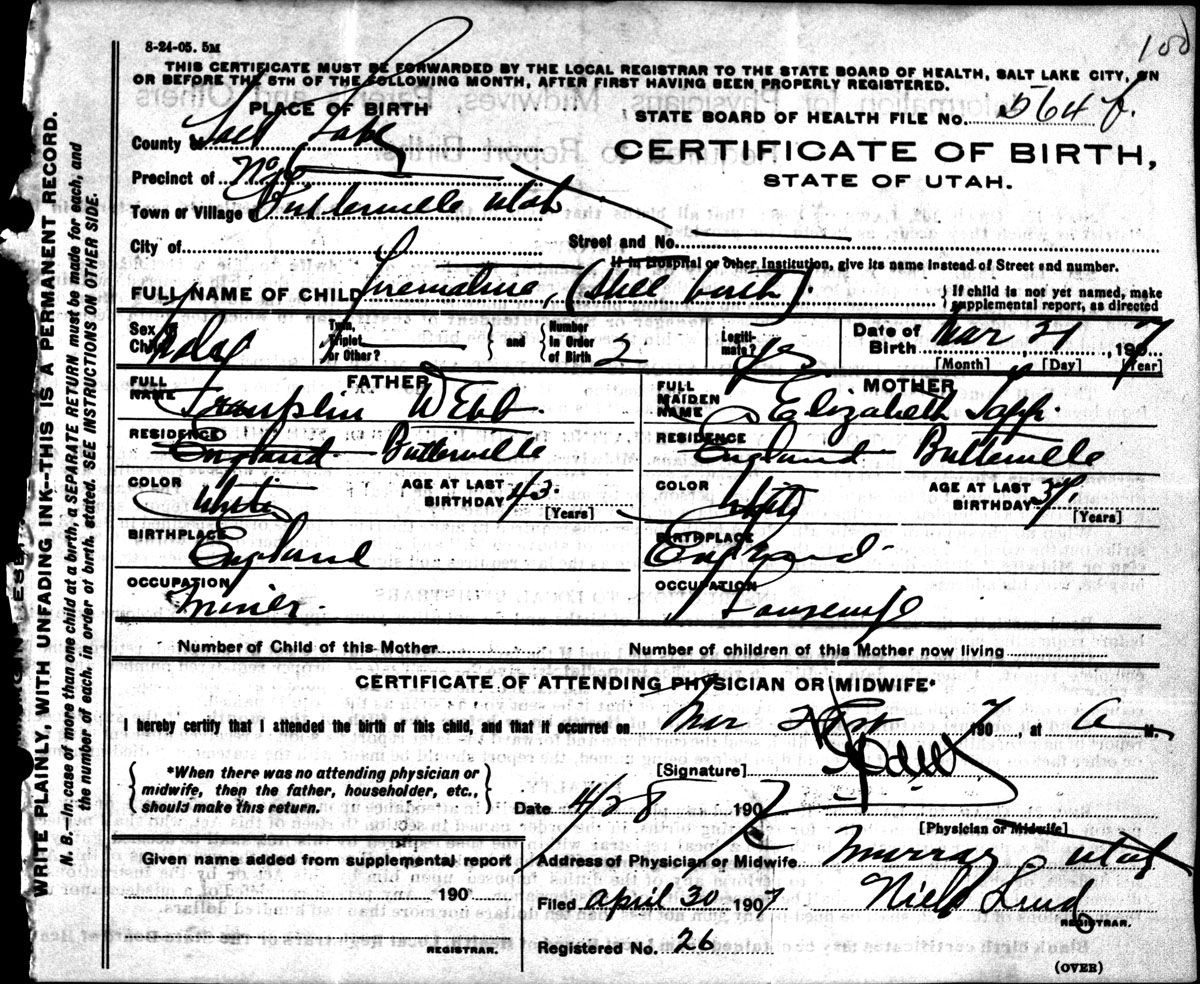 8-24-05. 5M
100
THIS CERTIFICATE MUST BE FORWARDED BY THE LOCAL REGISTRAR TO THE STATE BOARD OF HEALTH, SALT LAKE CITY, ON
OR BEFORE THE 5TH OF THE FOLLOWING MONTH, AFTER FIRST HAVING BEEN PROPERLY REGISTERED.
PLACE OF BIRTH
STATE BOARD OF HEALTH FILE No. 564 f.
County of Salt Lake
CERTIFICATE OF BIRTH,
Precinct of No 6
STATE OF UTAH.
Town or Village of Butterville Utah
City of
Street and No.
If in Hospital or other Institution, give its name instead of Street and number.
FULL NAME OF CHILD Premature, (Still birth).
If child is not yet named, make supplemental report, as directed
Sex of Child
Twin, Triplet or Other?
and
Number in Order of Birth 2
Legitimate? Yes
Date of Birth Mar 21, 1907
[Month] [Day] [Year]
FATHER
MOTHER
FULL NAME Franplin Webb.
FULL MAIDEN NAME Elizabeth Sapp.
RESIDENCE England Butterville
RESIDENCE England Butterville
COLOR White
AGE AT LAST BIRTHDAY 43. [Years]
COLOR White
AGE AT LAST BIRTHDAY 37. [Years]
BIRTHPLACE England
BIRTHPLACE England
OCCUPATION Miner.
OCCUPATION Housewife
Number of Child of this Mother
Number of children of this Mother now living
CERTIFICATE OF ATTENDING PHYSICIAN OR MIDWIFE*
I hereby certify that I attended the birth of this child, and that it occurred on Mar 21st 1907, at A M.
*When there was no attending physician or midwife, then the father, householder, etc., should make this return.
[Signature]
Date 4/28 1907
[Physician or Midwife]
Given name added from supplemental report
Address of Physician or Midwife Murray Utah
190
Filed April 30 1907 Niels Lind
REGISTRAR.
REGISTRAR.
Registered No. 26
(OVER)
WRITE PLAINLY, WITH UNFADING INK--THIS IS A PERMANENT RECORD.
N. B.--In case of more than one child at a birth, a SEPARATE RETURN must be made for each, and
the number of each, in order of birth, stated. SEE INSTRUCTIONS ON OTHER SIDE.